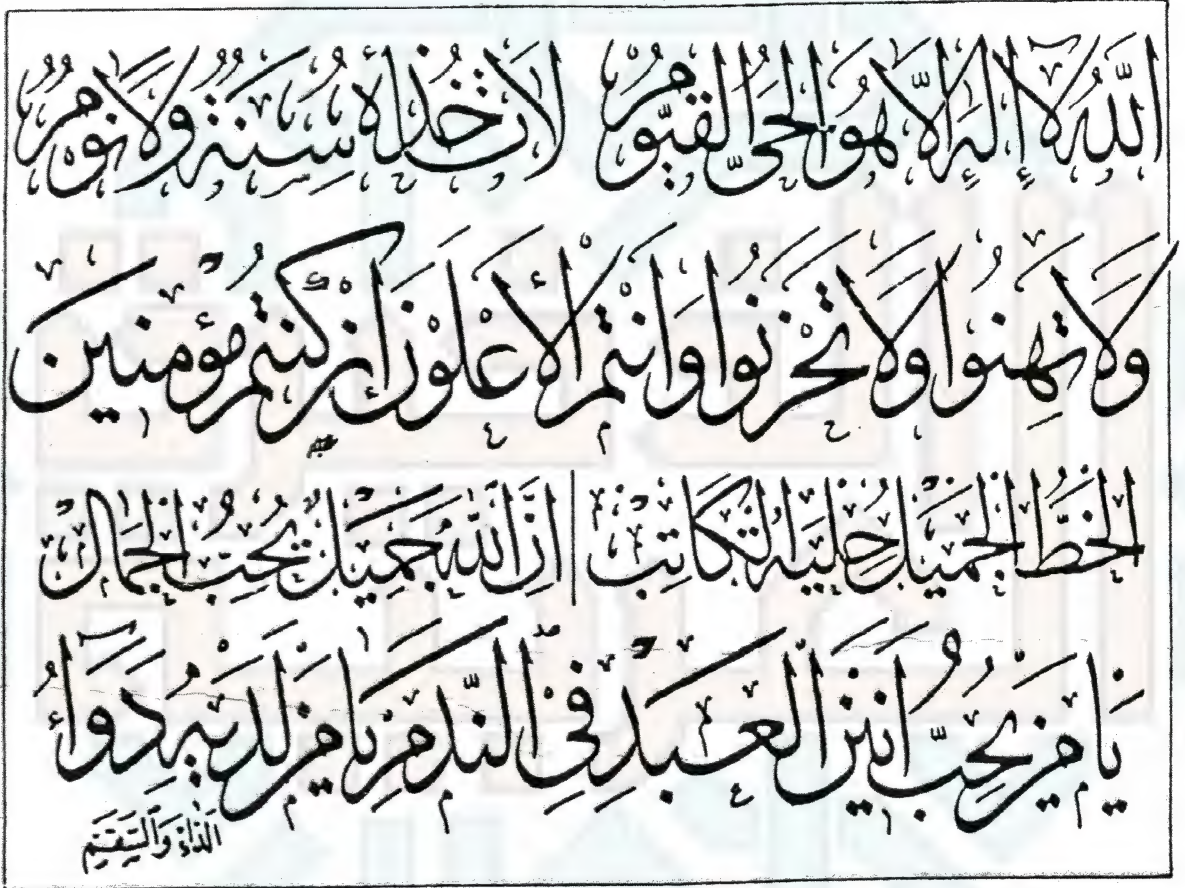 اللهُ لَا إِلٰهَ إِلَّا هُوَ الْحَىُّ الْقَيُّومُ لَا تَأْخُذُهُ سِنَةٌ وَلَا نَوْمٌ
وَلَا تَهِنُوا وَلَا تَحْزَنُوا وَأَنْتُمُ الْأَعْلَوْنَ إِنْ كُنْتُمْ مُؤْمِنِينَ
الْخَطُّ الْجَمِيْلُ حِلْيَةُ الْكَاتِبِ إِنَّ اللهَ جَمِيْلٌ يُحِبُّ الْجَمَالَ
يَا مَنْ يُحِبُّ أَنِيْنَ الْعَبْدِ فِي النَّدَمِ يَا مَنْ لَدَيْهِ دَوَاءُ
الدَّاءِ وَالسَّقَمِ